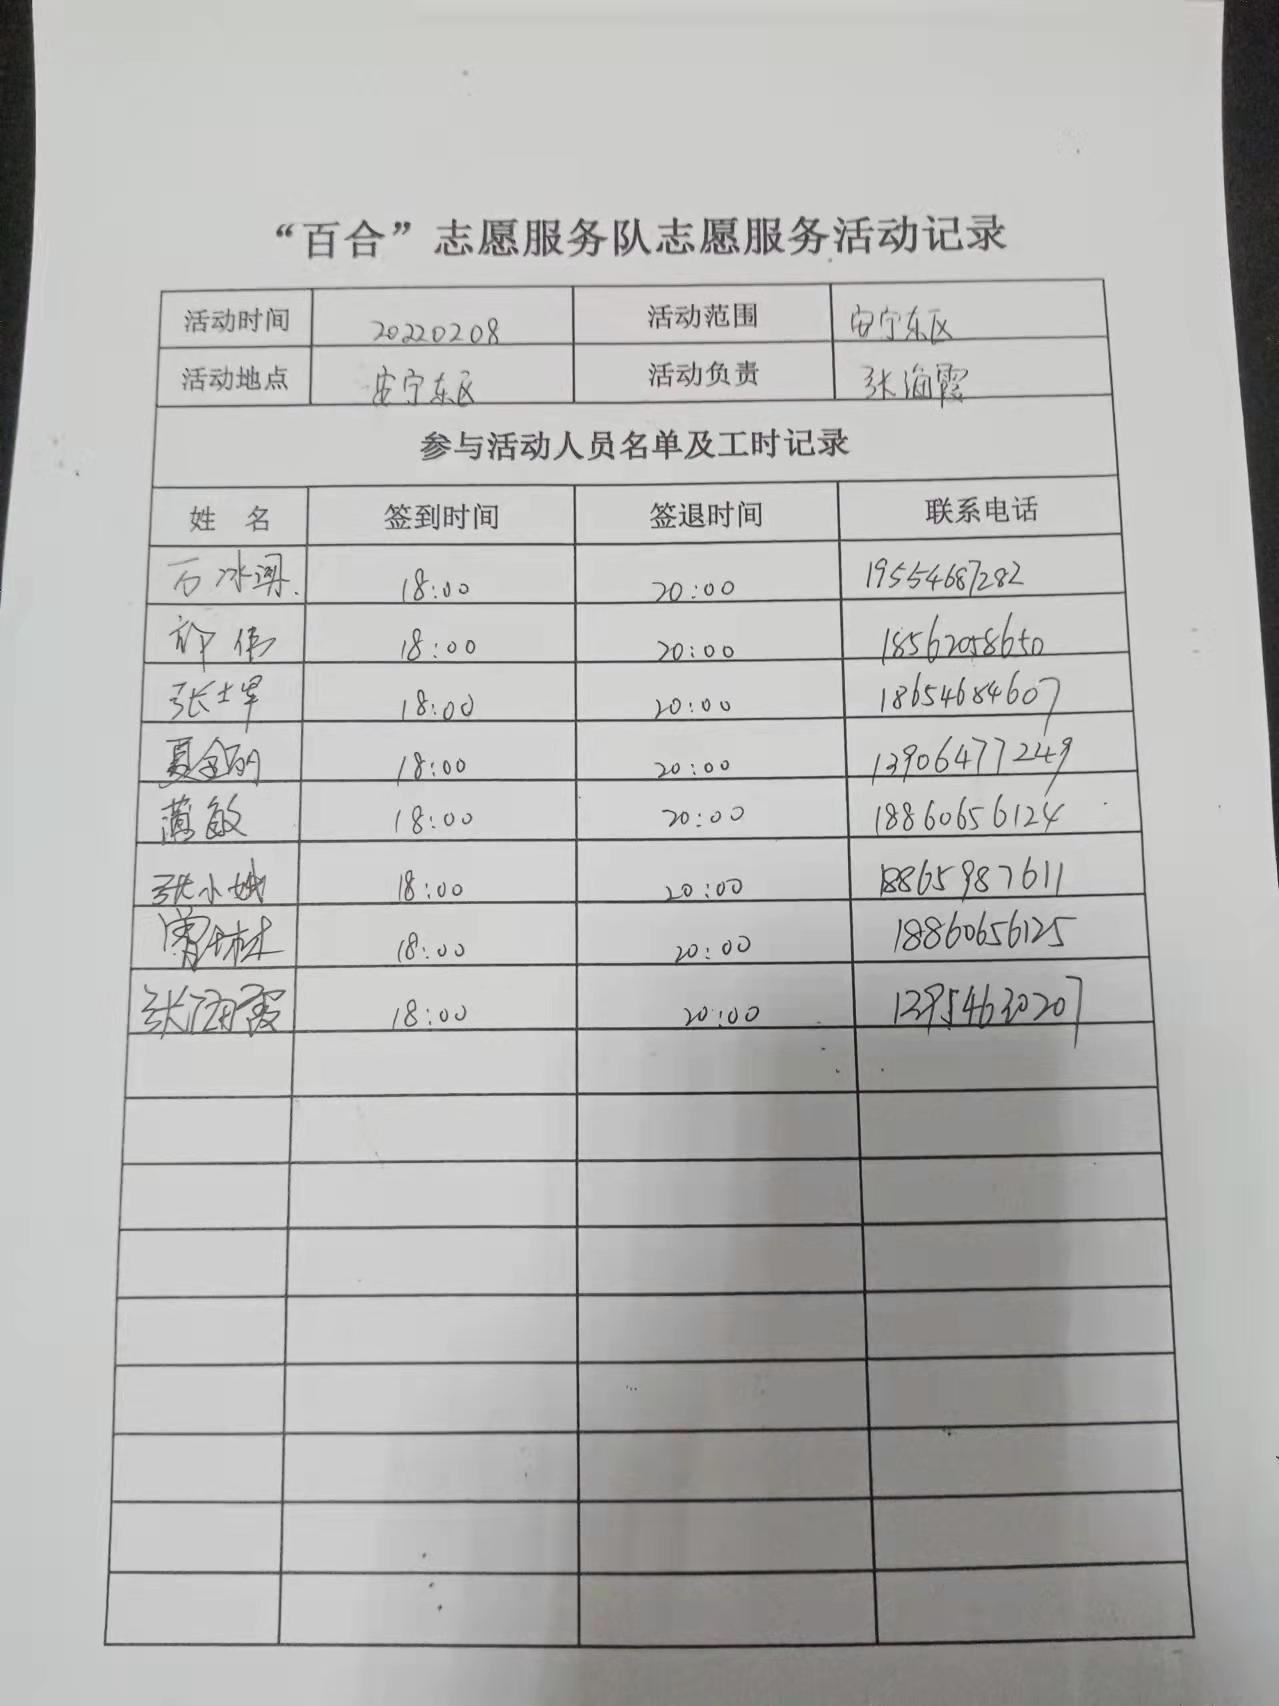 “百合”志愿服务队志愿服务活动记录
活动时间 20220208 活动范围 安宁东区
活动地点 安宁东区 活动负责 张海霞
参与活动人员名单及工时记录
姓 名 签到时间 签退时间 联系电话
18:00 20:00 19554687282
祁伟 18:00 20:00 18562058650
张士军 18:00 20:00 18654684607
18:00 20:00 13906477249
蒲敏 18:00 20:00 18860656124
张小娥 18:00 20:00 18865987611
18:00 20:00 18860656125
张海霞 18:00 20:00 13954630207